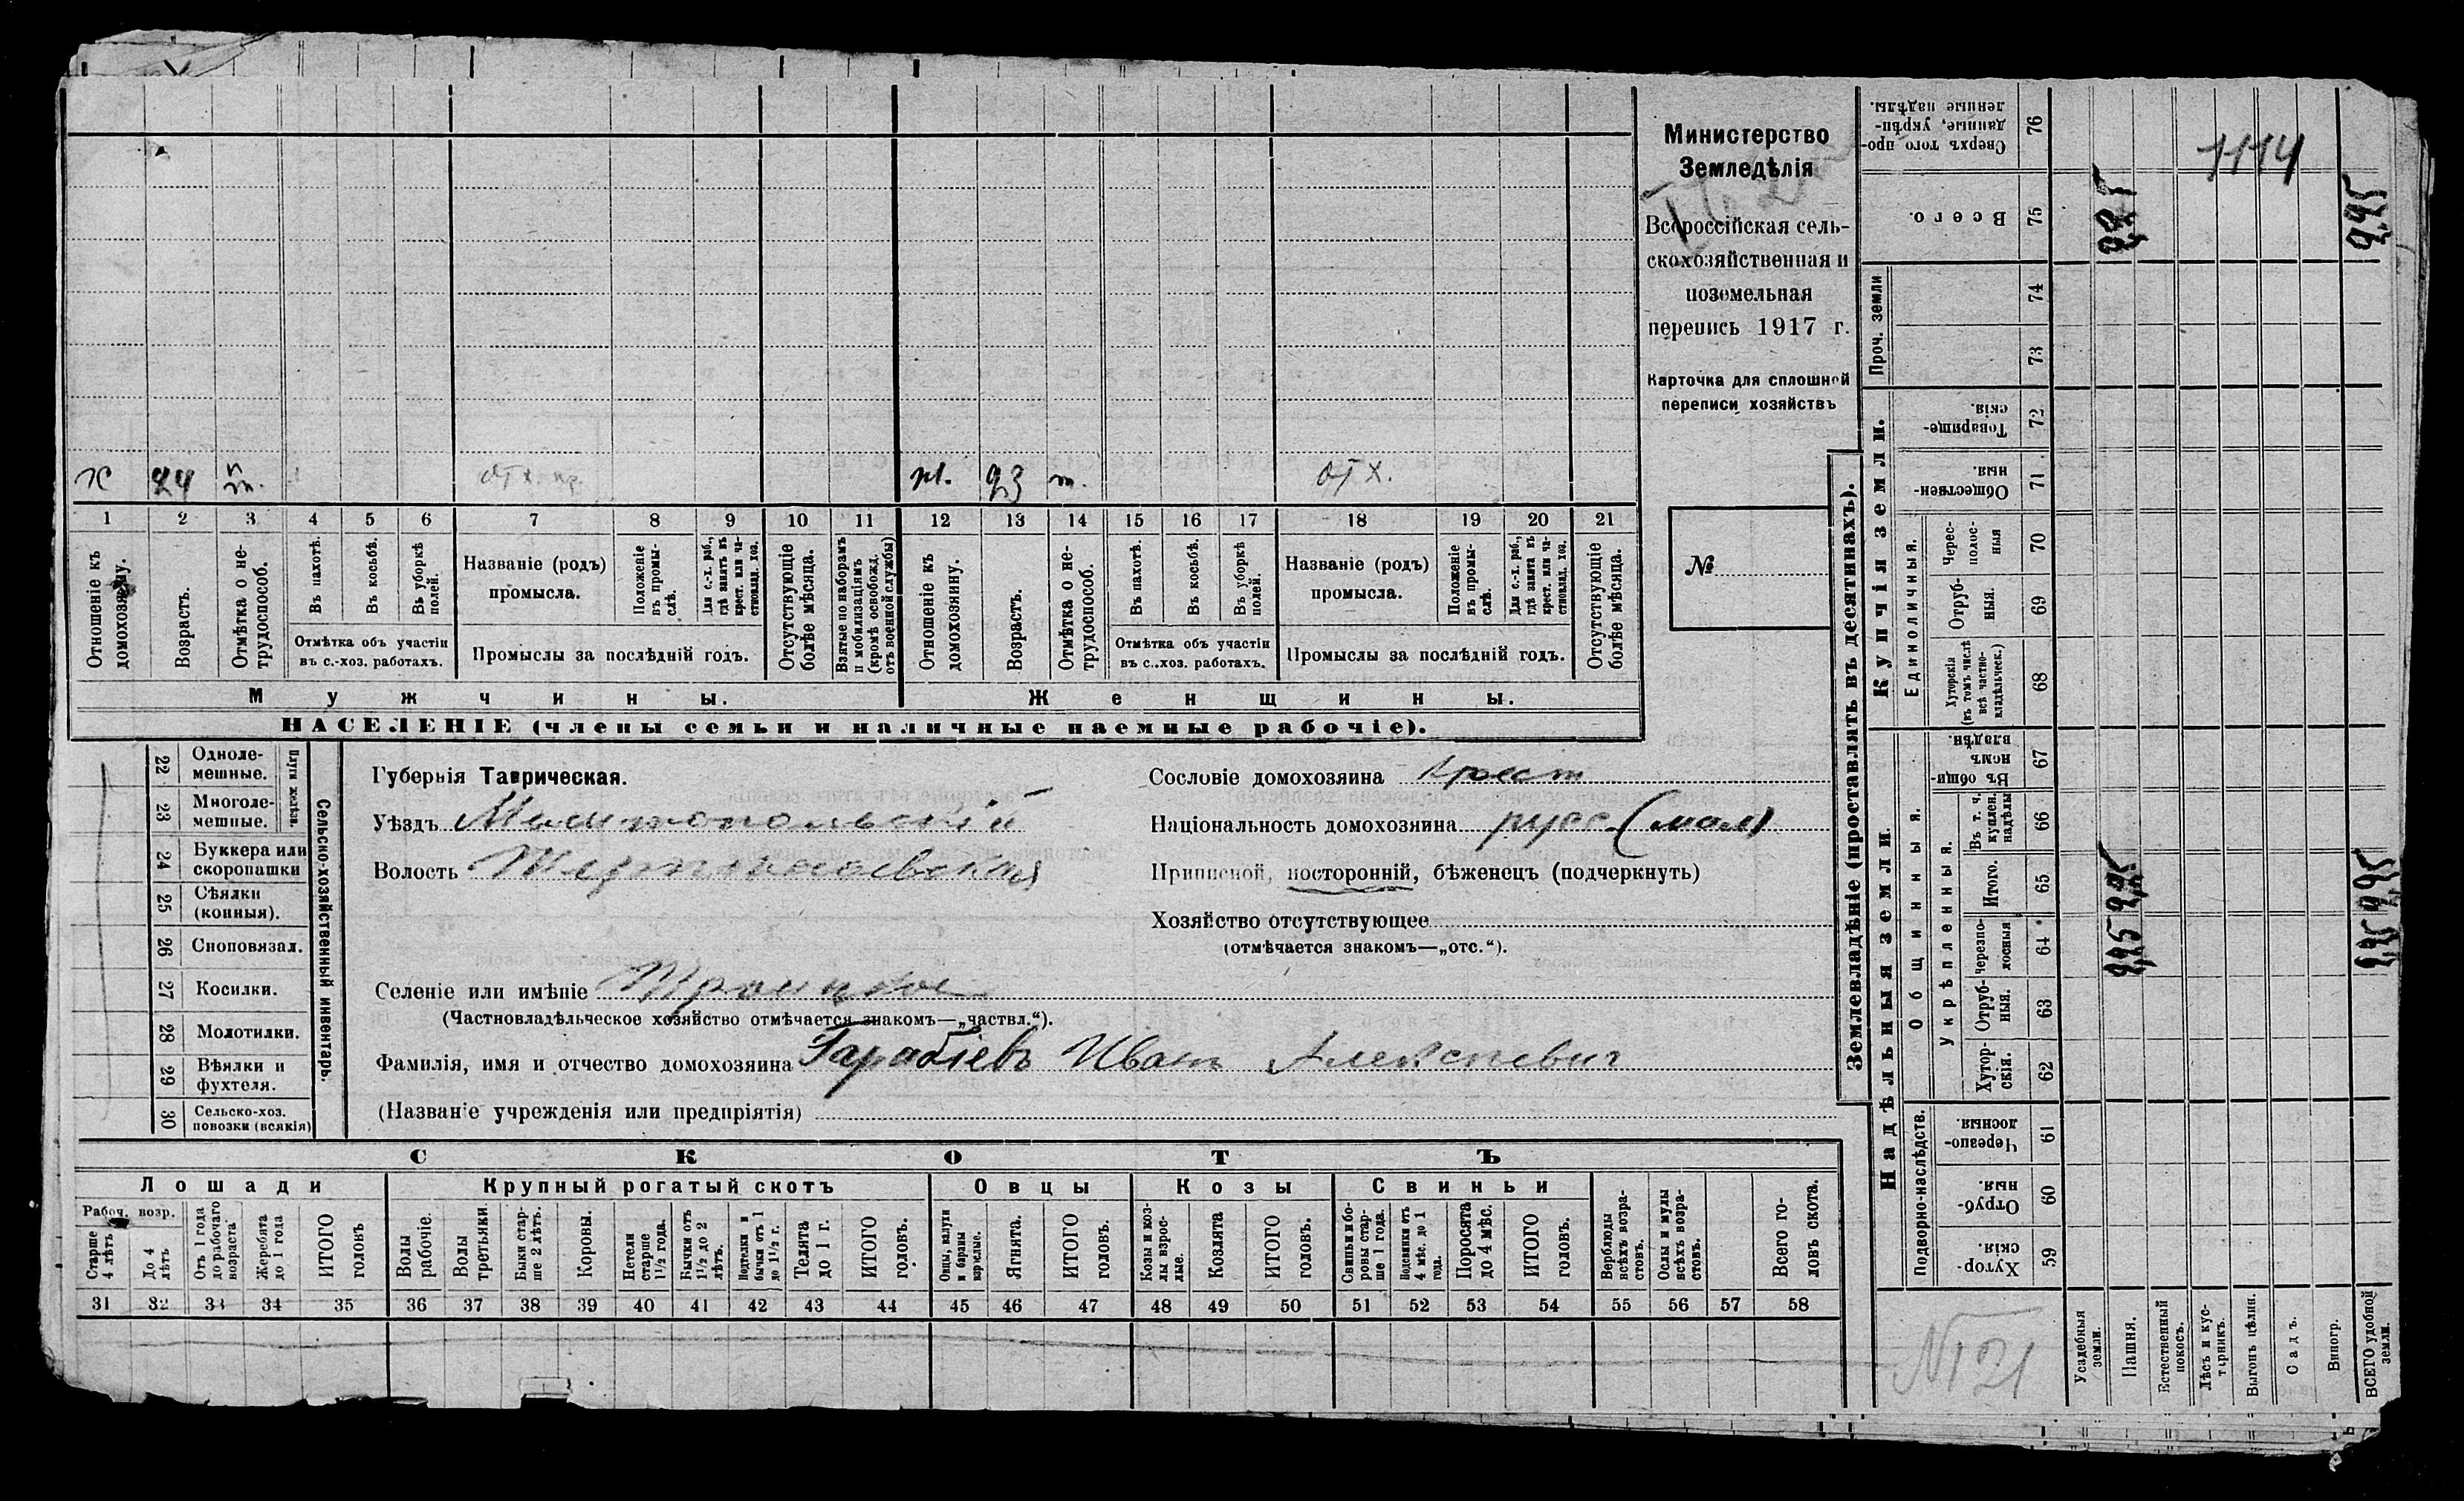 х 24 п т. отх. пр. 11. 23 т. отх.
1 2 3 4 5 6 7 8 9 10 11 12 13 14 15 16 17 18 19 20 21
Отношеніе къ домохозяину.
Возрастъ.
Отмѣтка о нетрудоспособ.
Въ пахотѣ.
Въ косьбѣ.
Въ уборкѣ полей.
Отмѣтка объ участіи
въ с.-хоз. работахъ.
Названіе (родъ)
промысла.
Положеніе въ промыслѣ.
Для с.-х. раб., гдѣ занятъ въ крест. или частновлад. хоз.
Промыслы за послѣдній годъ.
Отсутствующіе болѣе мѣсяца.
Взятые по наборамъ и мобилизаціямъ (кромѣ освобожд. отъ военной службы)
Отношеніе къ домохозяину.
Возрастъ.
Отмѣтка о нетрудоспособ.
Въ пахотѣ.
Въ косьбѣ.
Въ уборкѣ полей.
Отмѣтка объ участіи
въ с..хоз. работахъ.
Названіе (родъ)
промысла.
Положеніе въ промыслѣ.
Для с.-х. раб., гдѣ занята въ крест. или частновлад. хоз.
Промыслы за послѣдній годъ.
Отсутствующіе болѣе мѣсяца.
Мужчины. Женщины.
НАСЕЛЕНІЕ (члены семьи и наличные наемные рабочіе).
Министерство
Земледѣлія
Всероссійская сель-
скохозяйственная и
поземельная
перепись 1917 г.
Карточка для сплошной
переписи хозяйствъ
№
22 Однолемешные.
23 Многолемешные.
Плуги желѣз.
24 Буккера или скоропашки
25 Сѣялки (конныя).
26 Сноповязал.
27 Косилки.
28 Молотилки.
29 Вѣялки и фухтеля.
30 Сельско-хоз. повозки (всякія)
Сельско-хозяйственный инвентарь.
Губернія Таврическая.
Уѣздъ Мелитопольскій
Волость
Селеніе или имѣніе Троицкое
(Частновладѣльческое хозяйство отмѣчается знакомъ—„частвл.“).
Фамилія, имя и отчество домохозяина Гарабіевъ Иванъ Алексѣевич
(Названіе учрежденія или предпріятія)
Сословіе домохозяина крест
Національность домохозяина русс. (мал)
Приписной, посторонній, бѣженецъ (подчеркнуть)
Хозяйство отсутствующее
(отмѣчается знакомъ—„отс.“).
СКОТЪ
Лошади Крупный рогатый скотъ Овцы Козы Свиньи
Рабоч. возр.
Старше 4 лѣтъ
До 4 лѣтъ
Отъ 1 года до рабочаго возраста
Жеребята до 1 года
ИТОГО головъ
Волы рабочіе.
Волы третьяки.
Быки старше 2 лѣтъ.
Коровы.
Нетели старше 1½ года.
Бычки отъ 1½ до 2 лѣтъ.
Подтелки и бычки отъ 1 до 1½ г.
Телята до 1 г.
ИТОГО головъ.
Овцы, валухи и бараны взрослые.
Ягнята.
ИТОГО головъ.
Козы и козлы взрослые.
Козлята
ИТОГО головъ.
Свиньи и боровы старше 1 года.
Подсвинки отъ 4 мѣс. до 1 года.
Поросята до 4 мѣс.
ИТОГО головъ.
Верблюды всѣхъ возрастовъ.
Ослы и мулы всѣхъ возрастовъ.
Всего головъ скота.
31 32 33 34 35 36 37 38 39 40 41 42 43 44 45 46 47 48 49 50 51 52 53 54 55 56 57 58
Землевладѣніе (проставлять въ десятинахъ).
Надѣльныя земли. Купчія земли. Проч. земли
Подворно-наслѣдств. Общинныя. Единоличныя.
Укрѣпленныя.
Хуторскія. 59
Отрубныя. 60
Черезполосныя 61
Хуторскія. 62
Отрубныя. 63
Черезполосныя 64
Итого. 65
Въ т. ч. куплен. надѣлы 66
Въ общинномъ владѣн. 67
Хуторскія (въ томъ числѣ всѣ частновладѣльческ.) 68
Отрубныя. 69
Черезполосныя 70
Общественныя. 71
Товарищескія. 72
73
74
Всего. 75
Сверхъ того проданные, укрѣпленные надѣлы. 76
1114
2,25 2,25 2,25
2,25 2,25 2,25
№21
Усадебныя земли.
Пашня.
Естественный покосъ.
Лѣсъ и кустарникъ.
Выгонъ цѣлин.
Садъ.
Виногр.
ВСЕГО удобной земли.